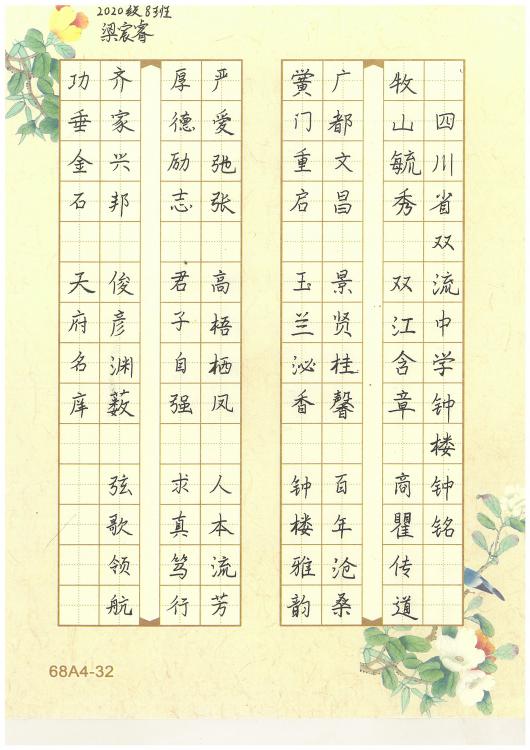 2020级8班
梁宸睿
四川省双流中学钟楼钟铭
牧山毓秀 双江含章 商瞿传道
广都文昌 景贤桂馨 百年沧桑
黉门重启 玉兰泌香 钟楼雅韵
严爱弛张 高梧栖凤 人本流芳
厚德励志 君子自强 求真笃行
齐家兴邦 俊彦渊薮 弦歌领航
功垂金石 天府名庠
68A4-32